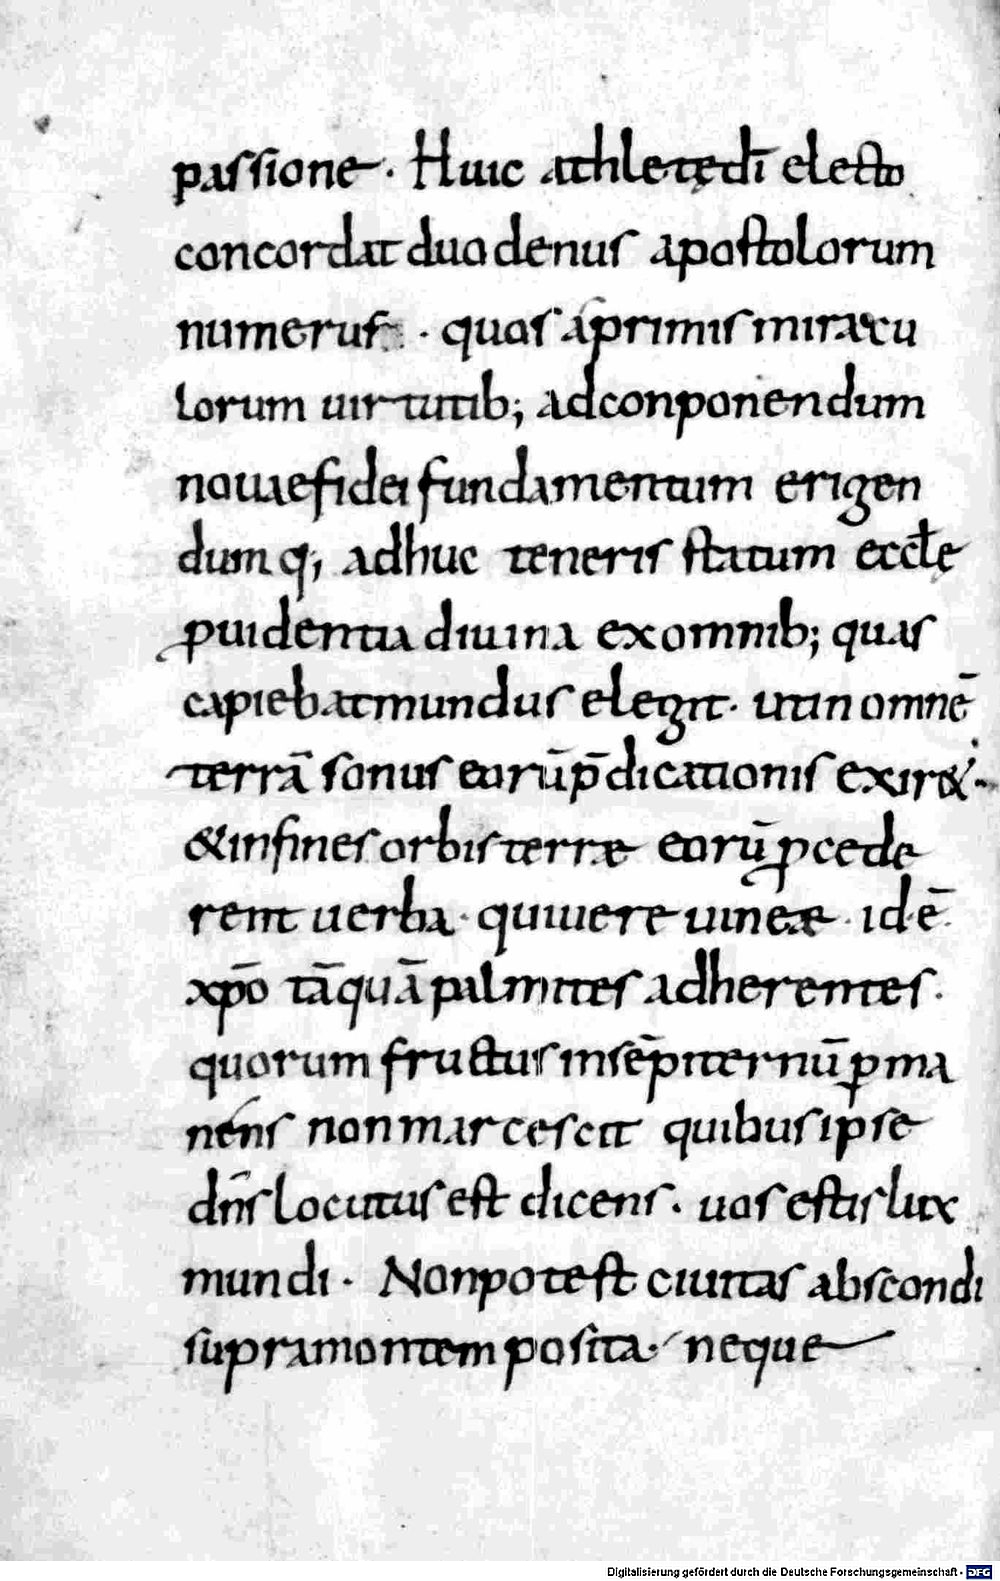 passione · Huic athletę dī electo
concordat duodenus apostolorum
numerus · quos a primis miracu
lorum uirtutib; adconponendum
nouae fidei fundamentum erigen
dumq; adhuc teneris statum eccłę
puidentia diuina exomnib; quas
capiebat mundus elegit · ut in omnē
terrā sonus eorū p̄dicationis exir& ·
& in fines orbis terrae eorū pcede
rent uerba · qui uiere uineae · id·ē·
xp̄o tāquā palmites adherentes ·
quorum fructus in sēpiternū pma
nens non marcescit quibus ipse
dn̄s locutus est dicens · uos estis lux
mundi · Non potest ciuitas abscondi
supra montem posita · neque
Digitalisierung gefördert durch die Deutsche Forschungsgemeinschaft - DFG